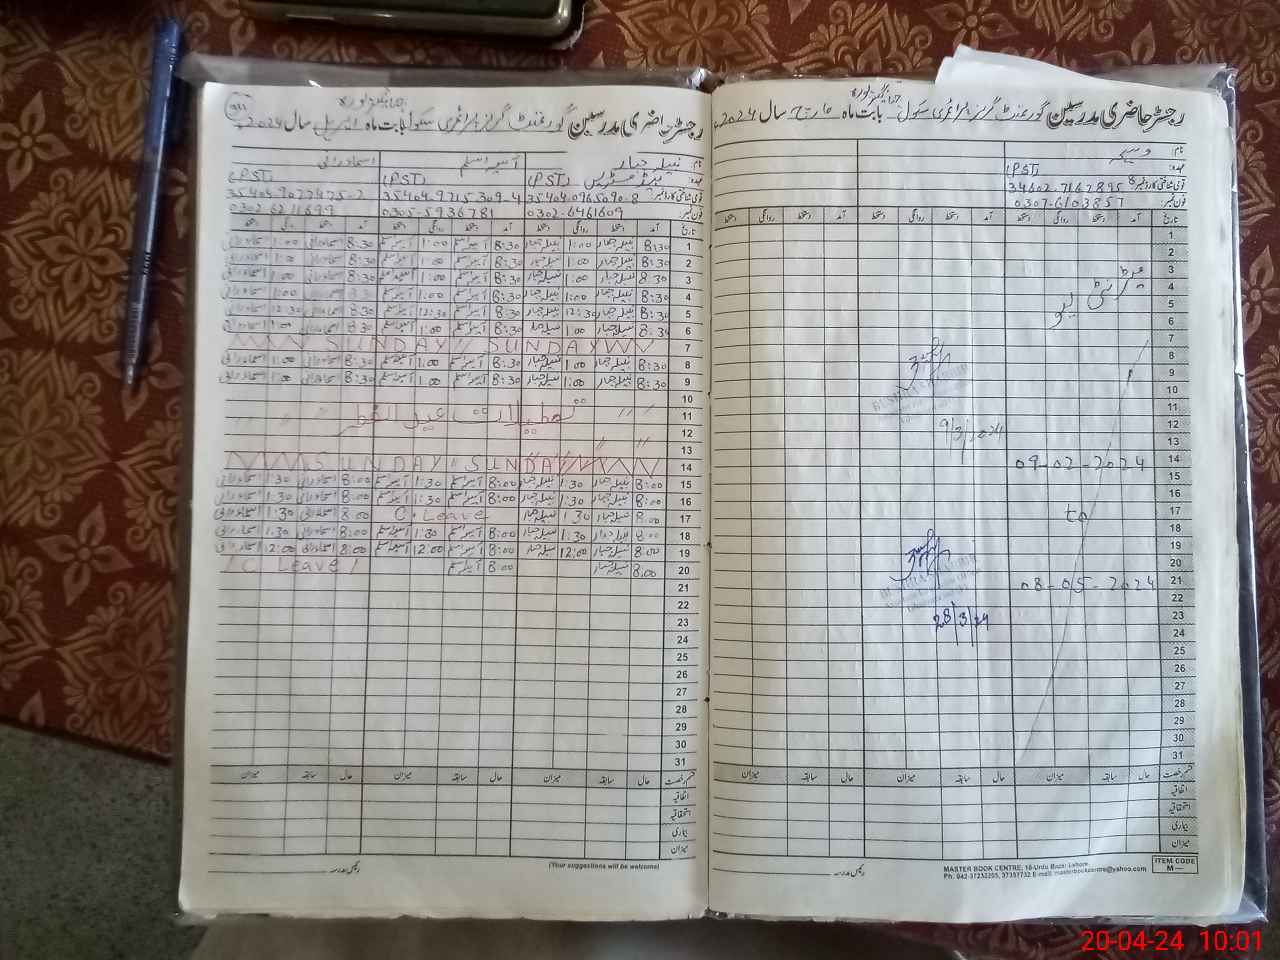 رجسٹر حاضری مدرسین گورنمنٹ گرلز پرائمری سکول جہانگیر پورہ بابت ماہ اپریل سال 2024ء
نام نبیلہ جبار آسیہ اسلم
عہدہ ہیڈ مسٹریس (PST) (PST) (PST)
قومی شناختی کارڈ نمبر 35404-0965090-8 35404-9715309-4 35404-9022475-2
فون نمبر 0302-6461609 0305-5936781 0302-6211699
تاریخ آمد دستخط روانگی دستخط آمد دستخط روانگی دستخط آمد دستخط روانگی دستخط
1 8:30 نبیلہ جبار 1:00 نبیلہ جبار 8:30 آسیہ اسلم 1:00 آسیہ اسلم 8:30 1:00
2 8:30 نبیلہ جبار 1:00 نبیلہ جبار 8:30 آسیہ اسلم 1:00 آسیہ اسلم 8:30 1:00
3 8:30 نبیلہ جبار 1:00 نبیلہ جبار 8:30 آسیہ اسلم 1:00 آسیہ اسلم 8:30 1:00
4 8:30 نبیلہ جبار 1:00 نبیلہ جبار 8:30 آسیہ اسلم 1:00 آسیہ اسلم 8:30 1:00
5 8:30 نبیلہ جبار 12:30 نبیلہ جبار 8:30 آسیہ اسلم 12:30 آسیہ اسلم 8:30 12:30
6 8:30 نبیلہ جبار 1:00 نبیلہ جبار 8:30 آسیہ اسلم 1:00 آسیہ اسلم 8:30 1:00
7 SUNDAY // SUNDAY
8 8:30 نبیلہ جبار 1:00 نبیلہ جبار 8:30 آسیہ اسلم 1:00 آسیہ اسلم 8:30 1:00
9 8:30 نبیلہ جبار 1:00 نبیلہ جبار 8:30 آسیہ اسلم 1:00 آسیہ اسلم 8:30 1:00
10
11 تعطیلات عید الفطر
12
13
14 SUNDAY // SUNDAY
15 8:00 نبیلہ جبار 1:30 نبیلہ جبار 8:00 آسیہ اسلم 1:30 آسیہ اسلم 8:00 1:30
16 8:00 نبیلہ جبار 1:30 نبیلہ جبار 8:00 آسیہ اسلم 1:30 آسیہ اسلم 8:00 1:30
17 8:00 نبیلہ جبار 1:30 نبیلہ جبار C. Leave 8:00 1:30
18 8:00 1:30 نبیلہ جبار 8:00 آسیہ اسلم 1:30 آسیہ اسلم 8:00 1:30
19 8:00 نبیلہ جبار 12:00 نبیلہ جبار 8:00 آسیہ اسلم 12:00 آسیہ اسلم 8:00 12:00
20 8:00 نبیلہ جبار 8:00 آسیہ اسلم C Leave
21
22
23
24
25
26
27
28
29
30
31
قسم رخصت حال سابقہ میزان حال سابقہ میزان حال سابقہ میزان
اتفاقیہ
استحقاقیہ
بیماری
میزان
(Your suggestions will be welcome)
رئیس مدرسہ
رجسٹر حاضری مدرسین گورنمنٹ گرلز پرائمری سکول جہانگیر پورہ بابت ماہ مارچ سال 2024ء
نام
عہدہ (PST)
قومی شناختی کارڈ نمبر 34602-7162895-8
فون نمبر 0307-6103857
تاریخ آمد دستخط روانگی دستخط آمد دستخط روانگی دستخط آمد دستخط روانگی دستخط
1
2
3
4 میٹرنٹی
5 لیو
6
7
8
9
10
11
12
9/3/2024
13
14 09-02-2024
15
16
17 to
18
19
20
21 08-05-2024
22
23 28/3/24
24
25
26
27
28
29
30
31
قسم رخصت حال سابقہ میزان حال سابقہ میزان حال سابقہ میزان
اتفاقیہ
استحقاقیہ
بیماری
میزان
رئیس مدرسہ
MASTER BOOK CENTRE, 16-Urdu Bazar Lahore.
Ph: 042-37232205, 37357732 E-mail: masterbookcentre@yahoo.com
ITEM CODE
M—
20-04-24 10:01